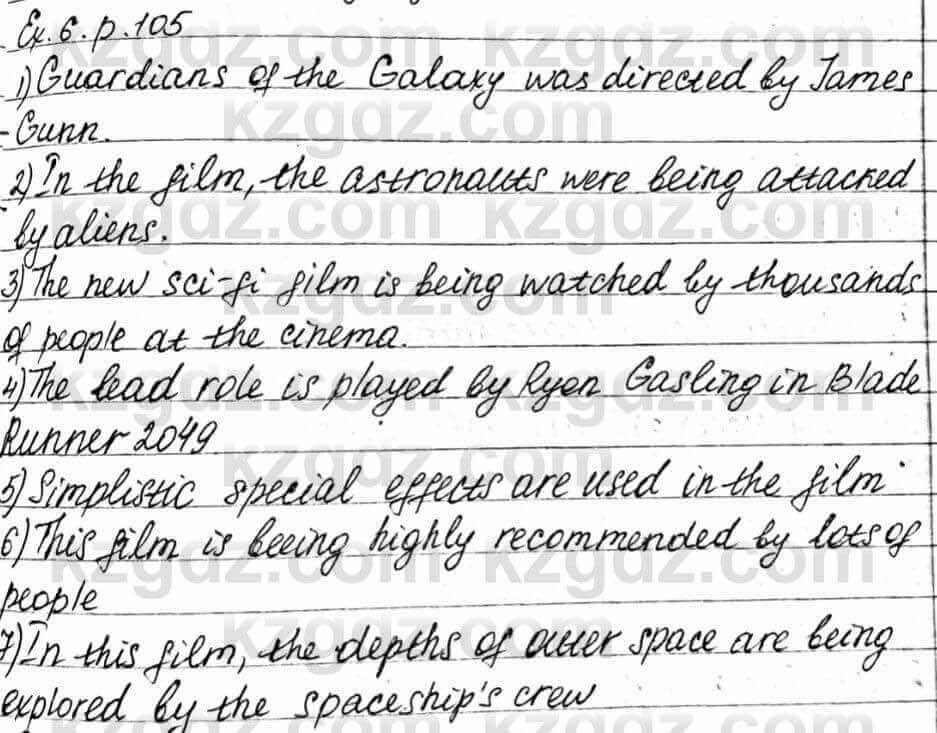 Ex. 6. p. 105
1) Guardians of the Galaxy was directed by James
Gunn.
2) In the film, the astronauts were being attacked
by aliens.
3) The new sci-fi film is being watched by thousands
of people at the cinema.
4) The lead role is played by Ryon Gasling in Blade
Runner 2049
5) Simplistic special effects are used in the film
6) This film is beeing highly recommended by lots of
people
7) In this film, the depths of outer space are being
explored by the spaceship's crew
kzgdz.com